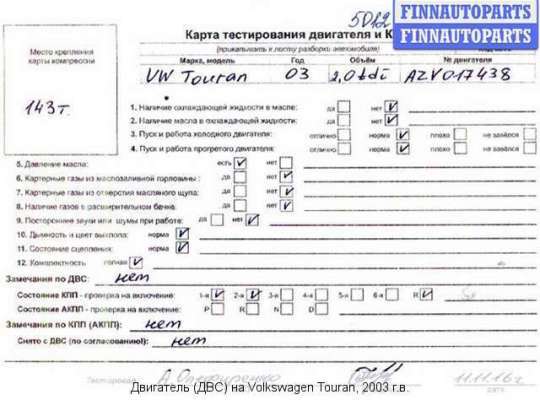 5D12
FINNAUTOPARTS
FINNAUTOPARTS
Карта тестирования двигателя и К
(прикапывать к посту разборки автомобиля)
Место крепления карты компрессии
Марка, модель Год Объём № двигателя
VW Touran 03 2,0tdi AZV017438
143т.
1. Наличие охлаждающей жидкости в масле: да нет
2. Наличие масла в охлаждающей жидкости: да нет
3. Пуск и работа холодного двигателя: отлично норма плохо не завёлся
4. Пуск и работа прогретого двигателя: отлично норма плохо не завёлся
5. Давление масла: есть нет
6. Картерные газы из маслозаливной горловины: да нет
7. Картерные газы из отверстия масляного щупа: да нет
8. Наличие газов в расширительном бачке: да нет
9. Посторонние звуки или шумы при работе: да нет
10. Дымность и цвет выхлопа: норма
11. Состояние сцепления: норма
12. Комплектность полная
Замечания по ДВС: нет
Состояние КПП - проверка на включение: 1-я 2-я 3-я 4-я 5-я 6-я R
Состояние АКПП - проверка на включение: P R N D
Замечания по КПП (АКПП): нет
Снято с ДВС (по согласованию!): нет
Тестировал: 11.11.16г.
дата
Двигатель (ДВС) на Volkswagen Touran, 2003 г.в.